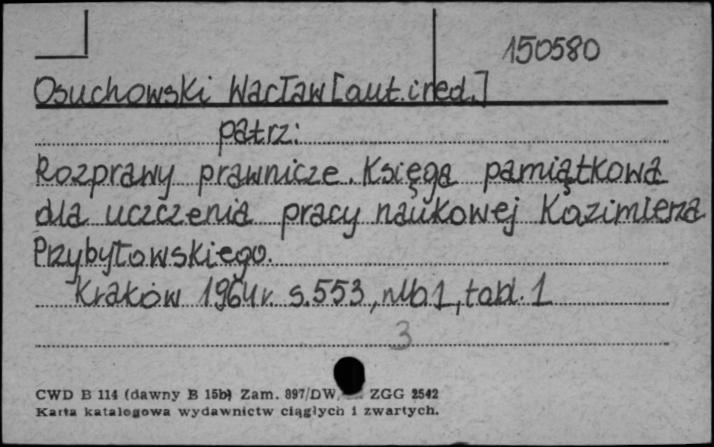 150580
Osuchowski Wacław [aut. i red.]
patrz:
Rozprawy prawnicze. Księga pamiątkowa
dla uczczenia pracy naukowej Kazimierza
Przybyłowskiego.
Kraków 1964 r. s. 553, nlb 1, tabl. 1
3
CWD B 114 (dawny B 15b) Zam. 897/DW, ZGG 2542
Karta katalogowa wydawnictw ciągłych i zwartych.